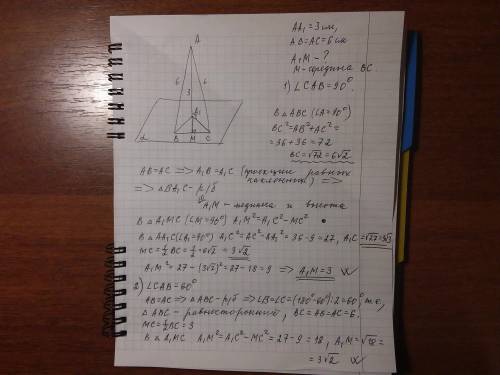 AA₁ = 3 см,
AB = AC = 6 см
A₁M - ?
M - середина BC.
1) ∠CAB = 90°.
A
6
6
3
A₁
B M C
α
В △ABC (∠A = 90°)
BC² = AB² + AC² =
= 36 + 36 = 72
BC = √72 = 6√2
AB = AC => A₁B = A₁C (проекции равных
наклонных) =>
=> △BA₁C - р/б
A₁M - медиана и высота
В △A₁MC (∠M = 90°) A₁M² = A₁C² - MC²
В △AA₁C (∠A₁ = 90°) A₁C² = AC² - AA₁² = 36 - 9 = 27, A₁C = √27 = 3√3
MC = ½BC = ½·6√2 = 3√2
A₁M² = 27 - (3√2)² = 27 - 18 = 9 => A₁M = 3
2) ∠CAB = 60°
AB = AC => △ABC - р/б => ∠B = ∠C = (180° - 60°) : 2 = 60°, т.е,
△ABC - равносторонний, BC = AB = AC = 6.
MC = ½BC = 3
В △A₁MC A₁M² = A₁C² - MC² = 27 - 9 = 18, A₁M = √18 =
= 3√2